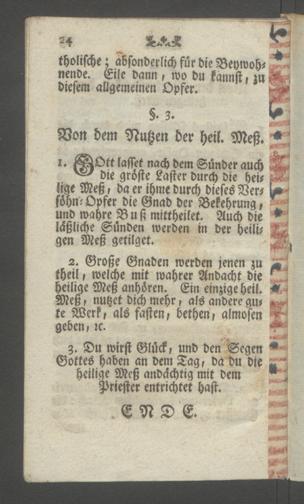 24
tholische; absonderlich für die Beywoh-
nende. Eile dann, wo du kannst, zu
diesem allgemeinen Opfer.
§. 3.
Von dem Nutzen der heil. Meß.
1. GOtt lasset nach dem Sünder auch
die gröste Laster durch die hei-
lige Meß, da er ihme durch dieses Ver-
söhn-Opfer die Gnad der Bekehrung,
und wahre Buß mittheilet. Auch die
läßliche Sünden werden in der heili-
gen Meß getilget.
2. Große Gnaden werden jenen zu
theil, welche mit wahrer Andacht die
heilige Meß anhören. Ein einzige heil.
Meß, nutzet dich mehr, als andere gu-
te Werk, als fasten, bethen, almosen
geben, ꝛc.
3. Du wirst Glück, und den Segen
Gottes haben an dem Tag, da du die
heilige Meß andächtig mit dem
Priester entrichtet hast.
ENDE.